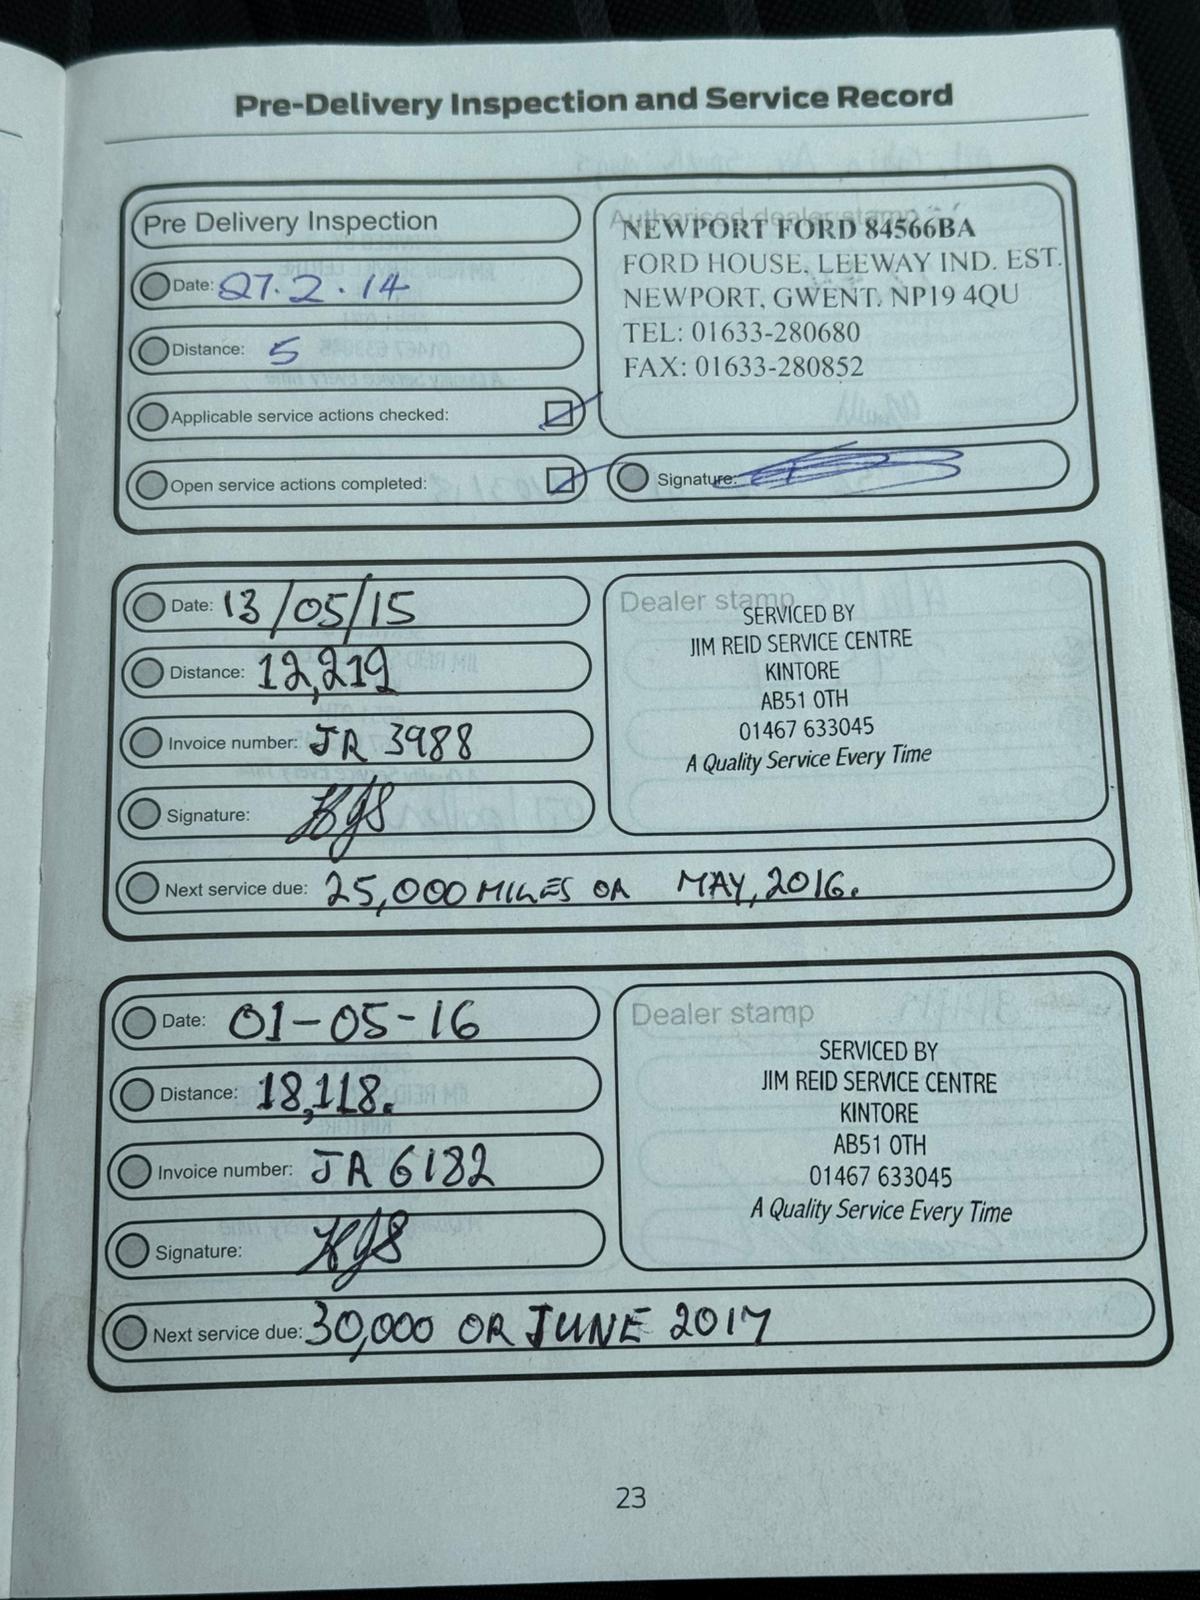 Pre-Delivery Inspection and Service Record
Pre Delivery Inspection
Date: 27.2.14
Distance: 5
Applicable service actions checked:
Open service actions completed:
Authorised dealer stamp
NEWPORT FORD 84566BA
FORD HOUSE, LEEWAY IND. EST.
NEWPORT, GWENT. NP19 4QU
TEL: 01633-280680
FAX: 01633-280852
Signature:
Date: 13/05/15
Distance: 12,219
Invoice number: JR 3988
Signature:
Dealer stamp
SERVICED BY
JIM REID SERVICE CENTRE
KINTORE
AB51 0TH
01467 633045
A Quality Service Every Time
Next service due: 25,000 MILES OR MAY, 2016.
Date: 01-05-16
Distance: 18,118.
Invoice number: JR 6182
Signature:
Dealer stamp
SERVICED BY
JIM REID SERVICE CENTRE
KINTORE
AB51 0TH
01467 633045
A Quality Service Every Time
Next service due: 30,000 OR JUNE 2017
23